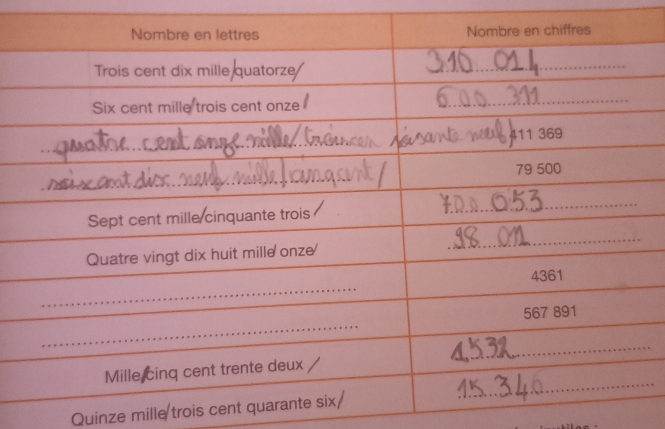 Nombre en lettres Nombre en chiffres
Trois cent dix mille/quatorze/ 310 014
Six cent mille/trois cent onze/ 600 311
quatre cent onze mille/ soisante neuf/ 411 369
soixant dix neuf mille/cinqcent/ 79 500
Sept cent mille/cinquante trois/ 700 053
Quatre vingt dix huit mille/onze/ 98 011
4361
567 891
Mille/cinq cent trente deux/ 1532
Quinze mille/trois cent quarante six/ 15 346